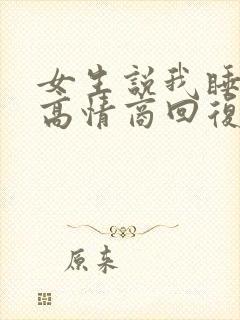 女生説我睡
高情商回復
原来